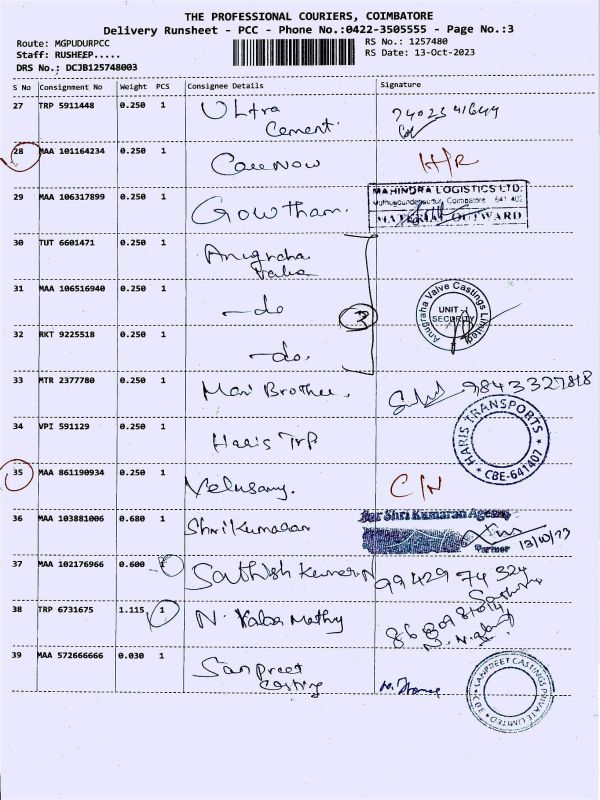 THE PROFESSIONAL COURIERS, COIMBATORE
Delivery Runsheet - PCC - Phone No.:0422-3505555 - Page No.:3
Route: MGPUDURPCC RS No.: 1257480
Staff: RUSHEEP..... RS Date: 13-Oct-2023
DRS No.: DCJB125748003
S No Consignment No Weight PCS Consignee Details Signature
27 TRP 5911448 0.250 1 Ultra
Cement.
28 MAA 101164234 0.250 1 CareNow H/R
29 MAA 106317899 0.250 1 Gowtham. MAHINDRA LOGISTICS LTD.
Coimbatore 641 402
MATERIAL OUTWARD
30 TUT 6601471 0.250 1 Anugraha
Valve
31 MAA 106516940 0.250 1 -do 3 Anugraha Valve Castings Limited
UNIT - I
SECURITY
32 RKT 9225518 0.250 1 -do.
33 MTR 2377780 0.250 1 Mani Brother. 9843327818
34 VPI 591129 0.250 1 Haris Trp HARIS TRANSPORTS
CBE-641407
35 MAA 861190934 0.250 1 Velusamy. C/N
36 MAA 103881006 0.680 1 Shrikumaran For Shri Kumaran Agency
Partner 13/10/23
37 MAA 102176966 0.600 1 Sathish Kumar N 99429 74 324
38 TRP 6731675 1.115 1 N.
39 MAA 572666666 0.030 1 Sanpreet
Casting SANPREET CASTINGS PRIVATE LIMITED